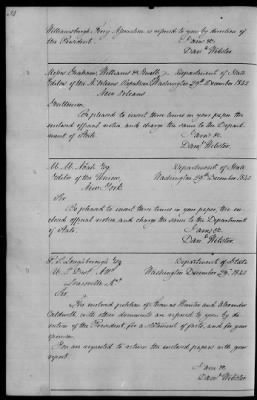 Williamsburgh Henry Apostolon is referred to you by direction of
the President.
I am &c.
Danl. Webster.
Department of State
Editors of the N. Orleans Republican Washington 29th December 1842
New Orleans
Gentlemen
Be pleased to insert three times in your paper, the
enclosed official notice and charge the same to the Depart-
ment of State.
I am &c.
Danl. Webster.
M. M. Noah Esq Department of State
Editor of the Union, Washington 29th December 1842
New York
Sir
Be pleased to insert three times in your paper, the en-
closed official notice and charge the same to the Department
of State.
I am &c.
Danl. Webster.
Department of State
U. S. Dist. Atty Washington December 29th 1842
Louisville Ky
Sir
The enclosed petition of Thomas and Alexander
Caldwell, with other documents are referred to you by di-
rection of the President, for a statement of facts, and for your
opinion.
You are requested to return the enclosed papers with your
report.
I am &c.
Danl. Webster.